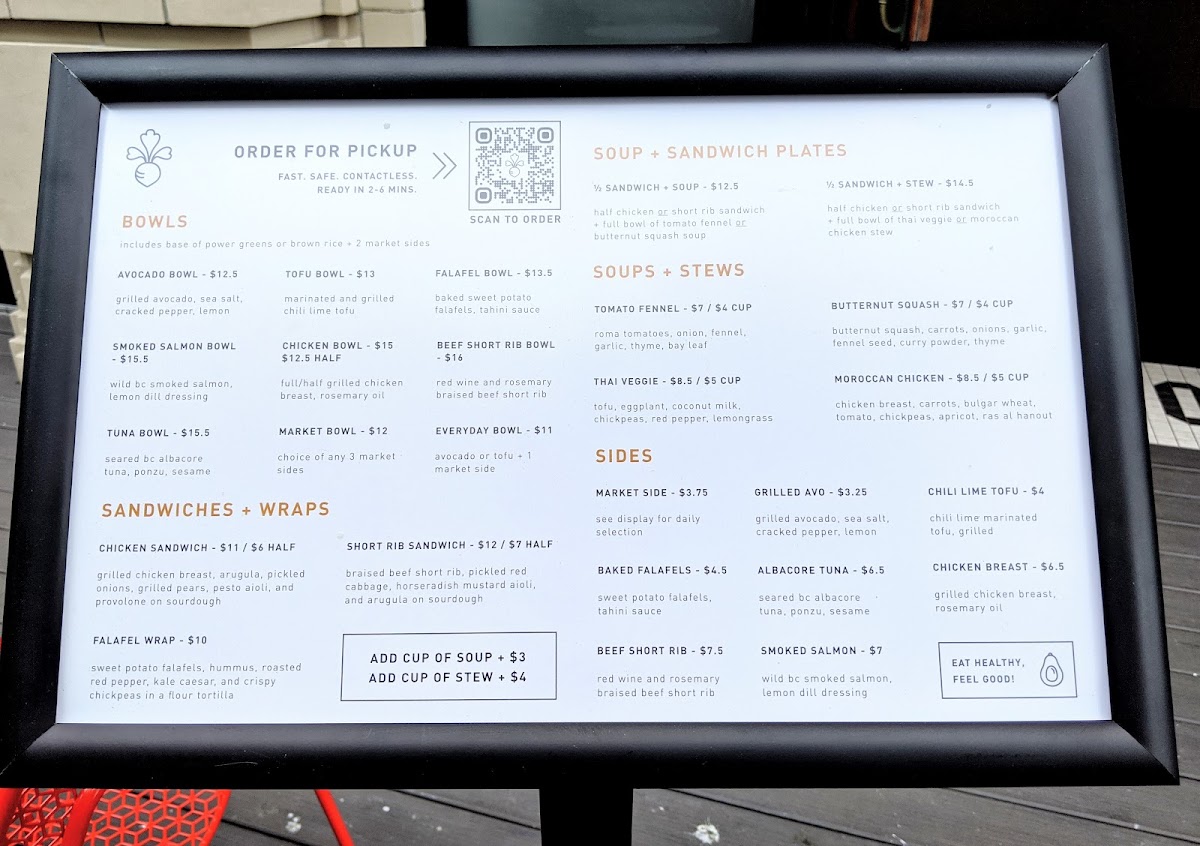 ORDER FOR PICKUP
FAST. SAFE. CONTACTLESS.
READY IN 2-6 MINS.
SCAN TO ORDER
BOWLS
includes base of power greens or brown rice + 2 market sides
AVOCADO BOWL - $12.5
grilled avocado, sea salt,
cracked pepper, lemon
TOFU BOWL - $13
marinated and grilled
chili lime tofu
FALAFEL BOWL - $13.5
baked sweet potato
falafels, tahini sauce
SMOKED SALMON BOWL
- $15.5
wild bc smoked salmon,
lemon dill dressing
CHICKEN BOWL - $15
$12.5 HALF
full/half grilled chicken
breast, rosemary oil
BEEF SHORT RIB BOWL
- $16
red wine and rosemary
braised beef short rib
TUNA BOWL - $15.5
seared bc albacore
tuna, ponzu, sesame
MARKET BOWL - $12
choice of any 3 market
sides
EVERYDAY BOWL - $11
avocado or tofu + 1
market side
SANDWICHES + WRAPS
CHICKEN SANDWICH - $11 / $6 HALF
grilled chicken breast, arugula, pickled
onions, grilled pears, pesto aioli, and
provolone on sourdough
SHORT RIB SANDWICH - $12 / $7 HALF
braised beef short rib, pickled red
cabbage, horseradish mustard aioli,
and arugula on sourdough
FALAFEL WRAP - $10
sweet potato falafels, hummus, roasted
red pepper, kale caesar, and crispy
chickpeas in a flour tortilla
ADD CUP OF SOUP + $3
ADD CUP OF STEW + $4
SOUP + SANDWICH PLATES
½ SANDWICH + SOUP - $12.5
half chicken or short rib sandwich
+ full bowl of tomato fennel or
butternut squash soup
½ SANDWICH + STEW - $14.5
half chicken or short rib sandwich
+ full bowl of thai veggie or moroccan
chicken stew
SOUPS + STEWS
TOMATO FENNEL - $7 / $4 CUP
roma tomatoes, onion, fennel,
garlic, thyme, bay leaf
BUTTERNUT SQUASH - $7 / $4 CUP
butternut squash, carrots, onions, garlic,
fennel seed, curry powder, thyme
THAI VEGGIE - $8.5 / $5 CUP
tofu, eggplant, coconut milk,
chickpeas, red pepper, lemongrass
MOROCCAN CHICKEN - $8.5 / $5 CUP
chicken breast, carrots, bulgar wheat,
tomato, chickpeas, apricot, ras al hanout
SIDES
MARKET SIDE - $3.75
see display for daily
selection
GRILLED AVO - $3.25
grilled avocado, sea salt,
cracked pepper, lemon
CHILI LIME TOFU - $4
chili lime marinated
tofu, grilled
BAKED FALAFELS - $4.5
sweet potato falafels,
tahini sauce
ALBACORE TUNA - $6.5
seared bc albacore
tuna, ponzu, sesame
CHICKEN BREAST - $6.5
grilled chicken breast,
rosemary oil
BEEF SHORT RIB - $7.5
red wine and rosemary
braised beef short rib
SMOKED SALMON - $7
wild bc smoked salmon,
lemon dill dressing
EAT HEALTHY,
FEEL GOOD!